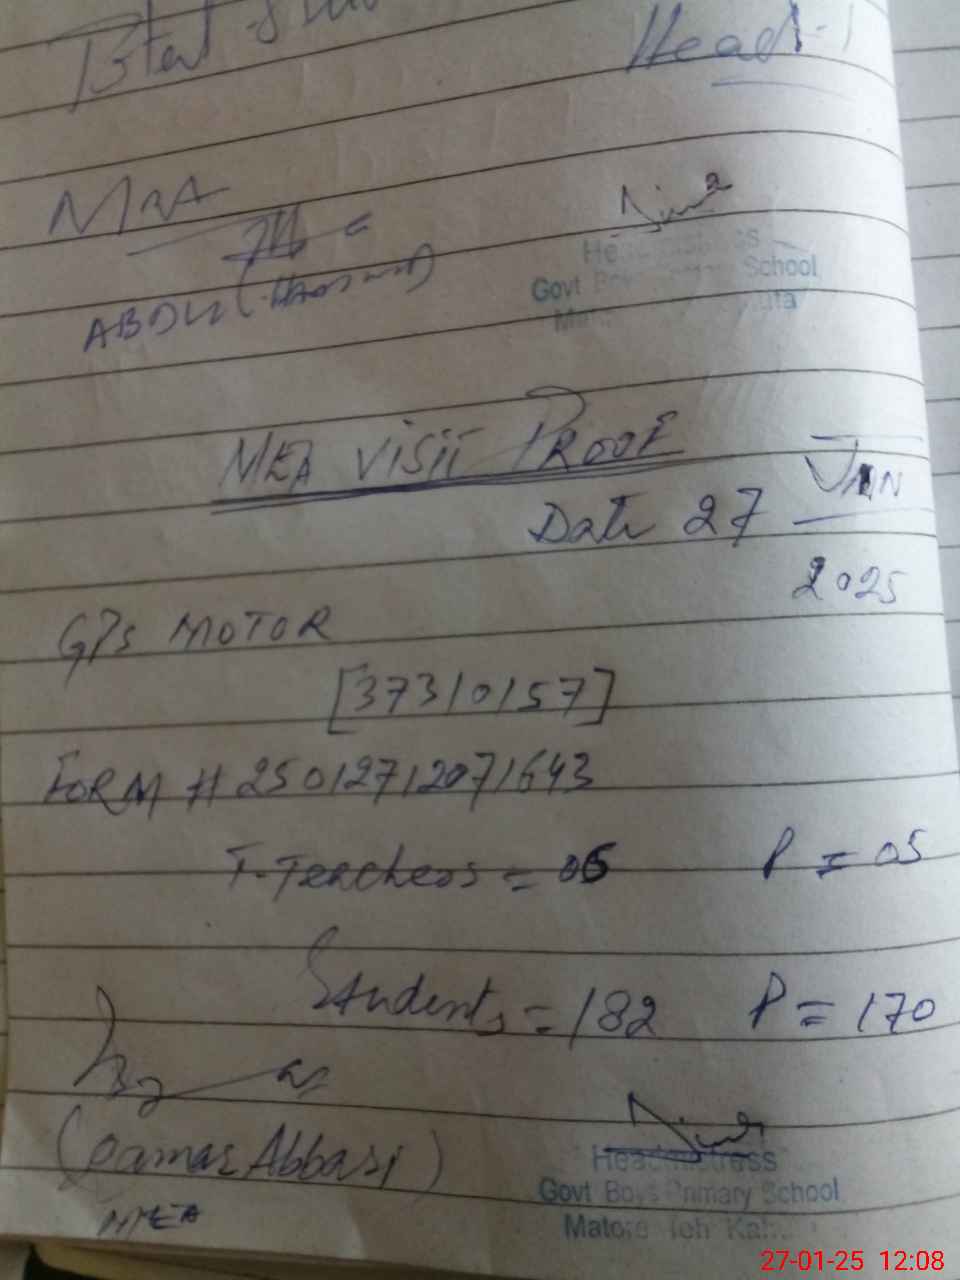 Total
Head-1
MEA
ABDUL
Headmistress
Govt Boys Primary School
MEA VISIT PROOF
Date 27 JAN
2025
GPS MOTOR
[37310157]
FORM # 25012712071643
T-Teachers = 06 P = 05
Students = 182 P = 170
(Qamar Abbasi)
MEA
Headmistress
Govt Boys Primary School
Matore Teh
27-01-25 12:08